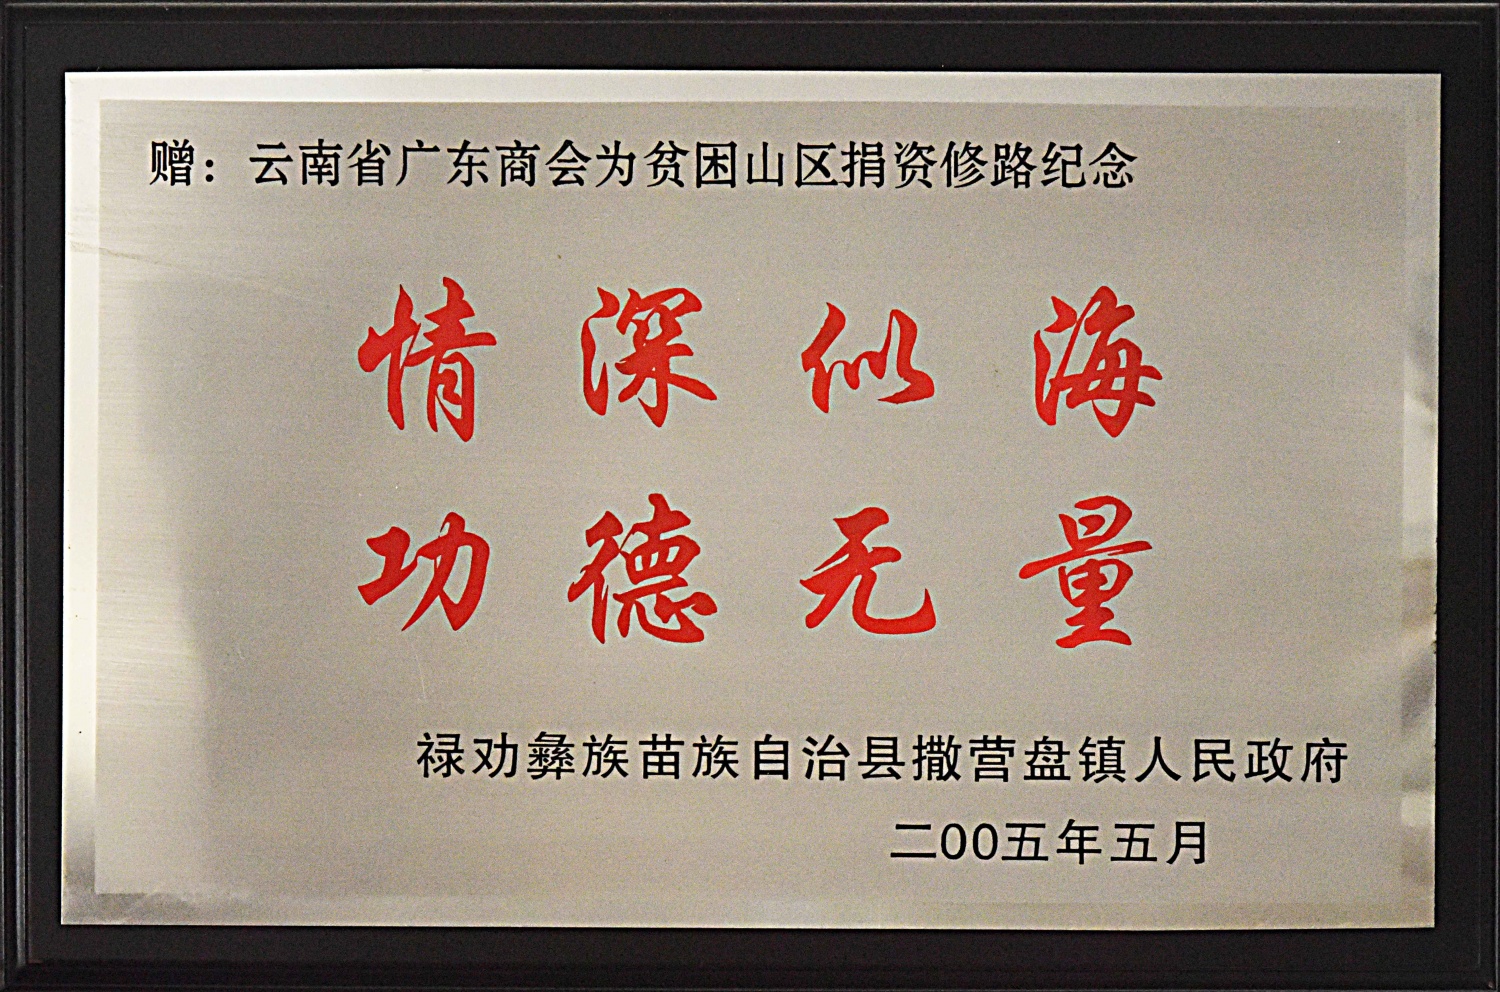 赠：云南省广东商会为贫困山区捐资修路纪念
情深似海
功德无量
禄劝彝族苗族自治县撒营盘镇人民政府
二00五年五月